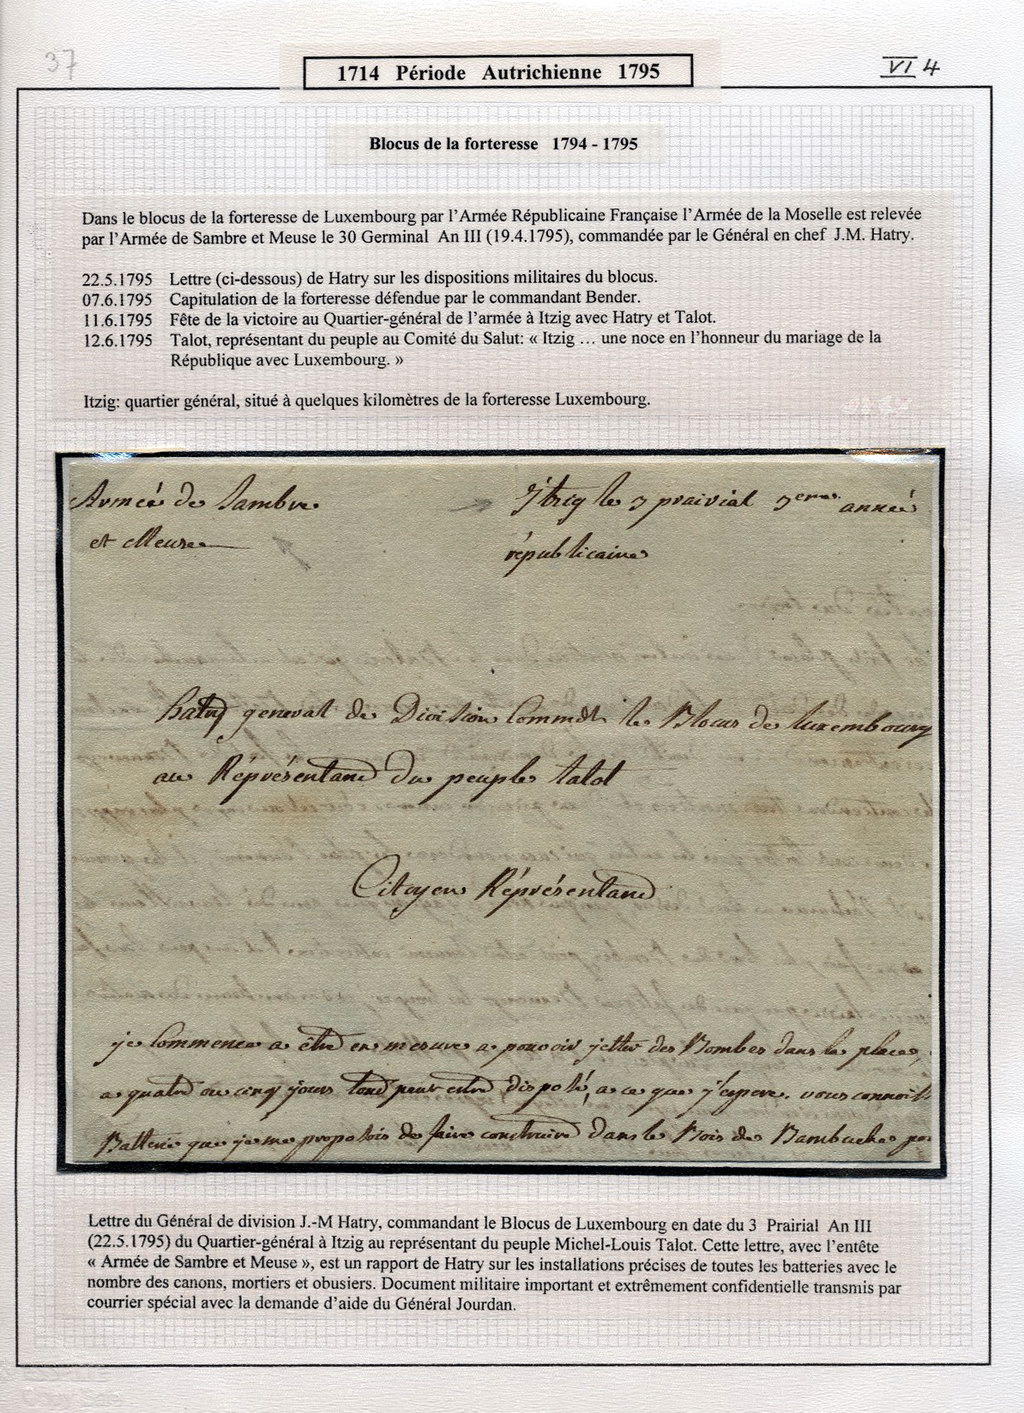 37
1714 Période Autrichienne 1795
VI 4
Blocus de la forteresse 1794 - 1795
Dans le blocus de la forteresse de Luxembourg par l'Armée Républicaine Française l'Armée de la Moselle est relevée
par l'Armée de Sambre et Meuse le 30 Germinal An III (19.4.1795), commandée par le Général en chef J.M. Hatry.
22.5.1795 Lettre (ci-dessous) de Hatry sur les dispositions militaires du blocus.
07.6.1795 Capitulation de la forteresse défendue par le commandant Bender.
11.6.1795 Fête de la victoire au Quartier-général de l'armée à Itzig avec Hatry et Talot.
12.6.1795 Talot, représentant du peuple au Comité du Salut: « Itzig ... une noce en l'honneur du mariage de la
République avec Luxembourg. »
Itzig: quartier général, situé à quelques kilomètres de la forteresse Luxembourg.
Armée de Sambre
et Meuse
Itzig le 3 prairial 3eme année
républicaine
hatry general de Division Commdt le Blocus de luxembourg
au Réprésentand du peuple talot
Citoyen Réprésentand
je Commence a être en mesure a pouvoir jetter des Bombes dans la place,
a quatre ou cinq jours tout peut etre disposé, a ce que j'espere. vous connoit
Batterie que je me proposois de faire construire dans le Bois de Bambucke
Lettre du Général de division J.-M Hatry, commandant le Blocus de Luxembourg en date du 3 Prairial An III
(22.5.1795) du Quartier-général à Itzig au représentant du peuple Michel-Louis Talot. Cette lettre, avec l'entête
« Armée de Sambre et Meuse », est un rapport de Hatry sur les installations précises de toutes les batteries avec le
nombre des canons, mortiers et obusiers. Document militaire important et extrêmement confidentielle transmis par
courrier spécial avec la demande d'aide du Général Jourdan.